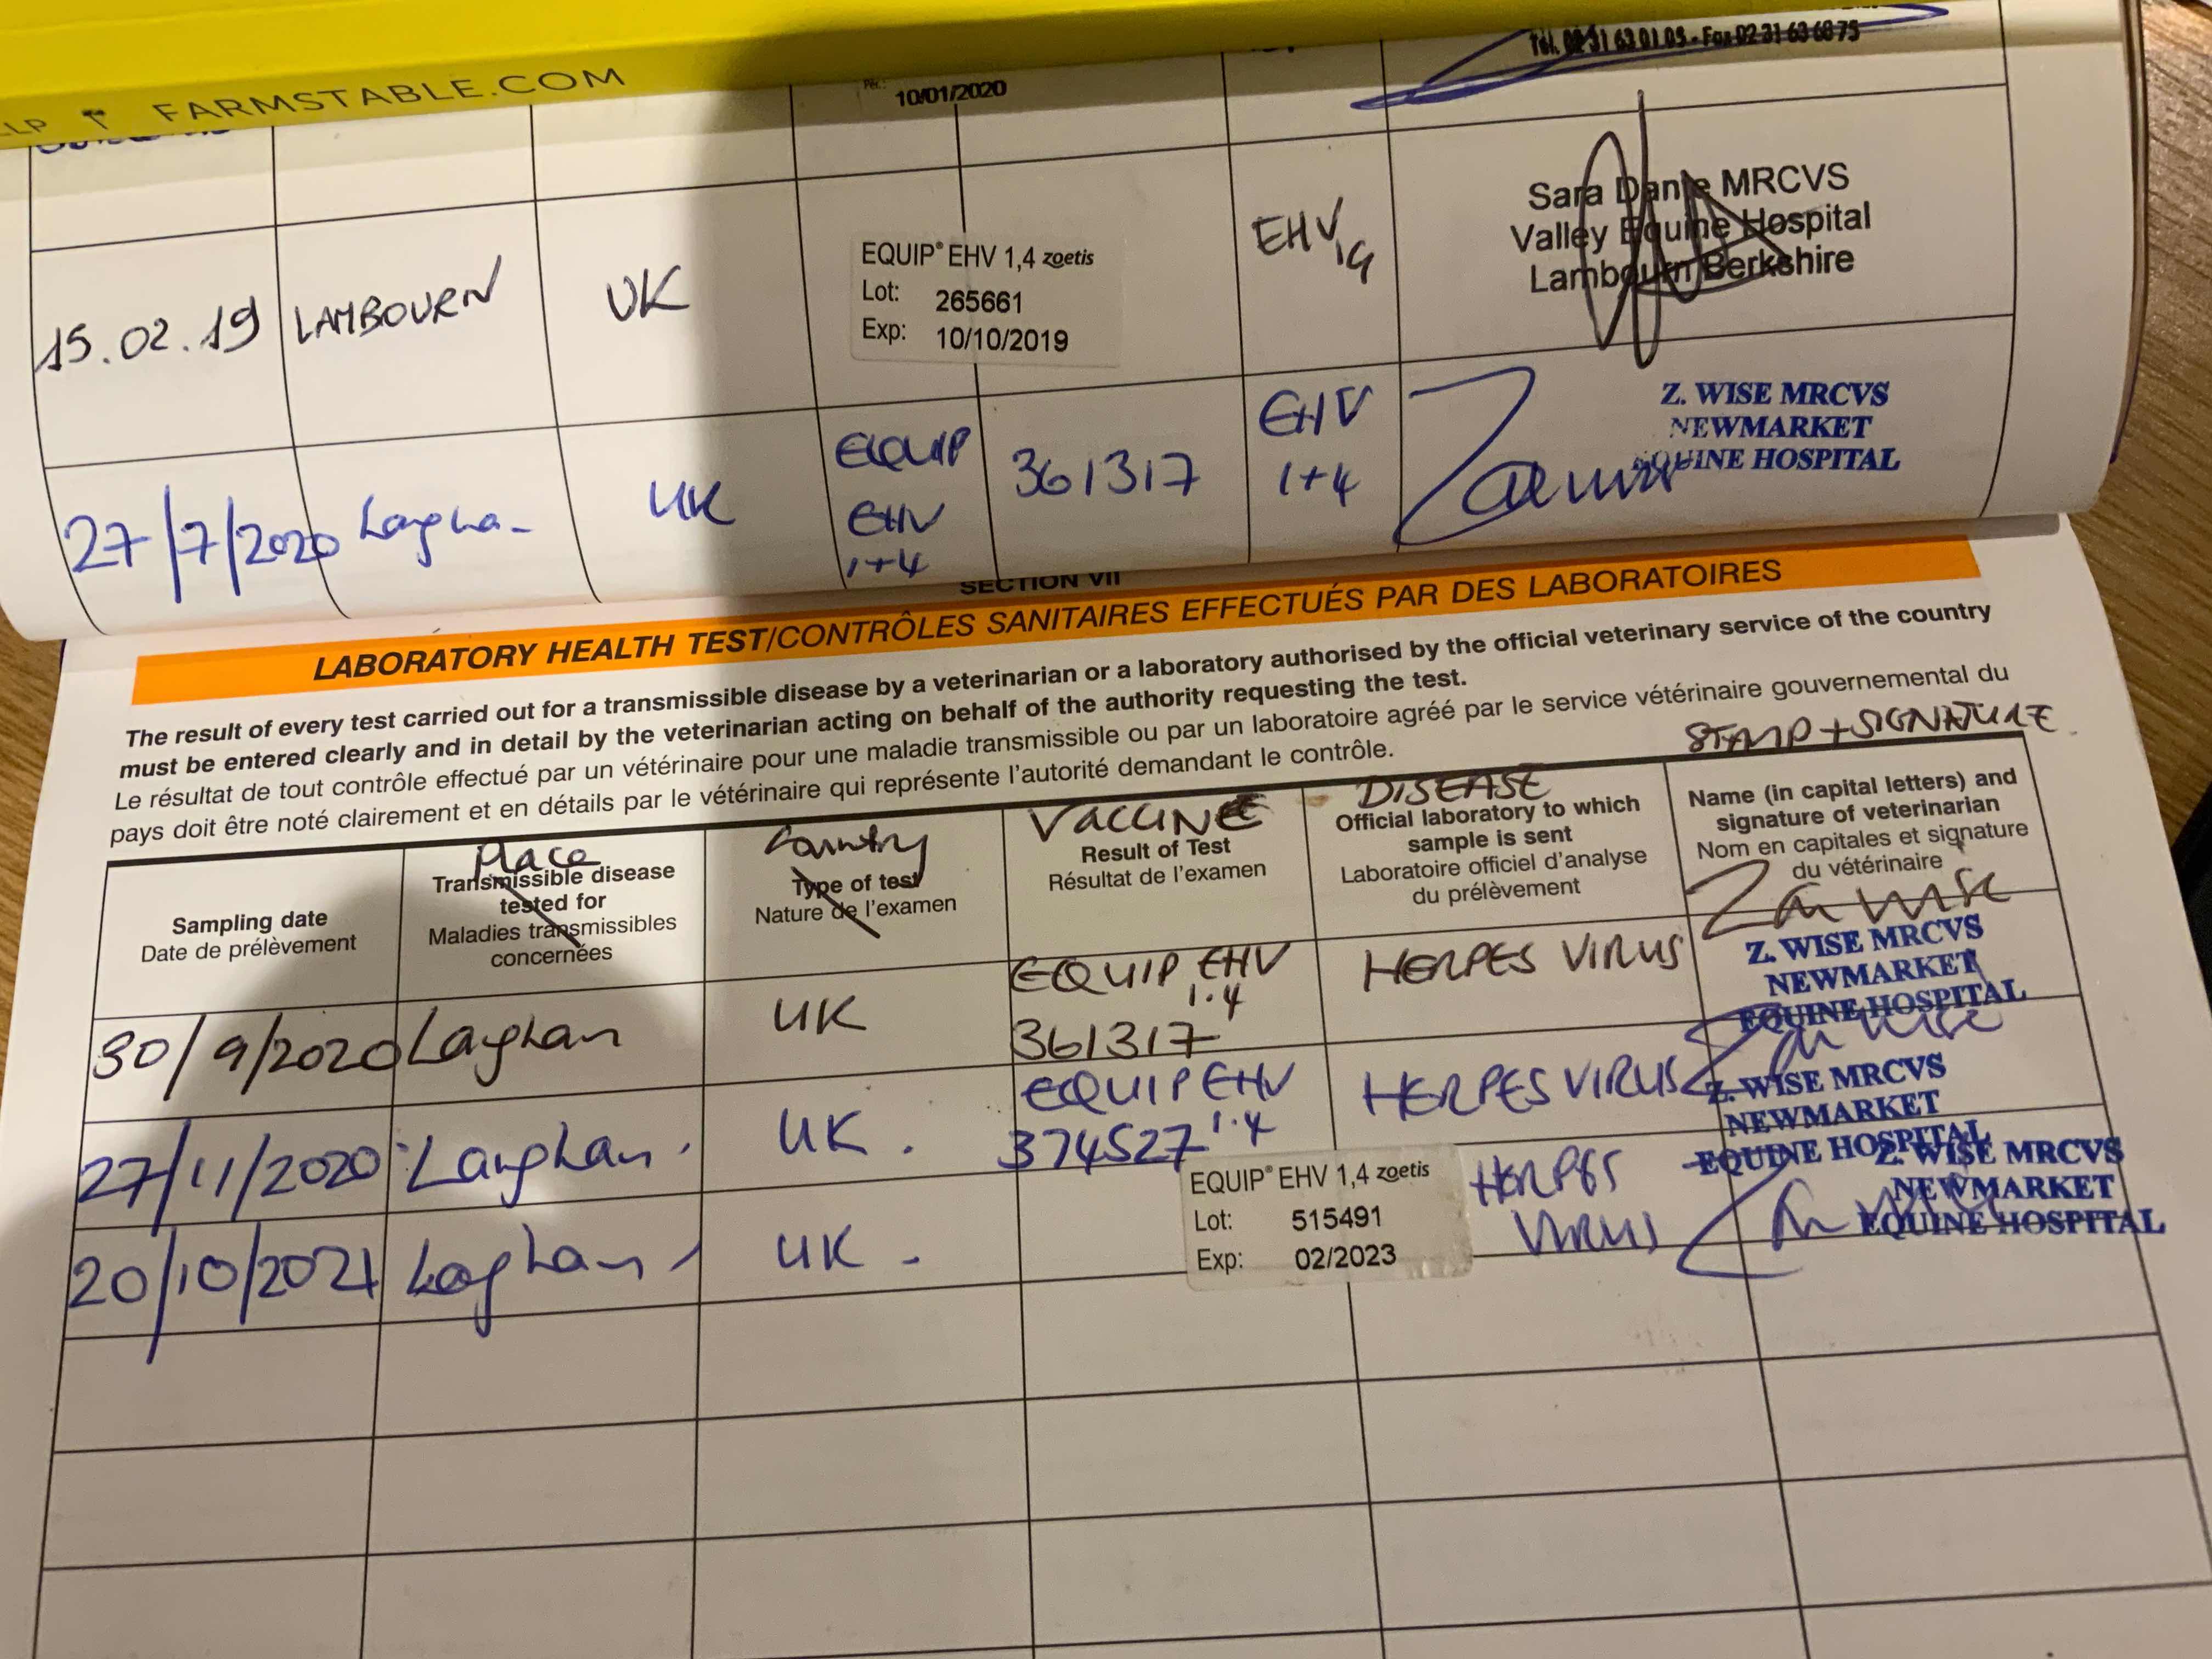 FARMSTABLE.COM
Tél. 02 31 63 01 05 - Fax 02 31 63 68 75
10/01/2020
15.02.19 LAMBOURN UK
EQUIP® EHV 1,4 zoetis
Lot: 265661
Exp: 10/10/2019
EHV
Sara MRCVS
Valley Equine Hospital
Lambourn Berkshire
27/7/2020 UK
EQUIP
EHV
1+4
361317
EHV
1+4
Z. WISE MRCVS
NEWMARKET
EQUINE HOSPITAL
SECTION VII
LABORATORY HEALTH TEST/CONTRÔLES SANITAIRES EFFECTUÉS PAR DES LABORATOIRES
The result of every test carried out for a transmissible disease by a veterinarian or a laboratory authorised by the official veterinary service of the country
must be entered clearly and in detail by the veterinarian acting on behalf of the authority requesting the test.
Le résultat de tout contrôle effectué par un vétérinaire pour une maladie transmissible ou par un laboratoire agréé par le service vétérinaire gouvernemental du
pays doit être noté clairement et en détails par le vétérinaire qui représente l'autorité demandant le contrôle.
Sampling date
Date de prélèvement
Place
Transmissible disease
tested for
Maladies transmissibles
concernées
Country
Type of test
Nature de l'examen
VACCINE
Result of Test
Résultat de l'examen
DISEASE
Official laboratory to which
sample is sent
Laboratoire officiel d'analyse
du prélèvement
STAMP + SIGNATURE
Name (in capital letters) and
signature of veterinarian
Nom en capitales et signature
du vétérinaire
30/9/2020 UK
EQUIP EHV
1.4
361317
HERPES VIRUS
Z. WISE MRCVS
NEWMARKET
EQUINE HOSPITAL
27/11/2020 UK.
EQUIP EHV
1.4
374527
HERPES VIRUS
Z. WISE MRCVS
NEWMARKET
EQUINE HOSPITAL
20/10/2021 UK -
EQUIP® EHV 1,4 zoetis
Lot: 515491
Exp: 02/2023
HERPES
VIRUS
Z. WISE MRCVS
NEWMARKET
EQUINE HOSPITAL